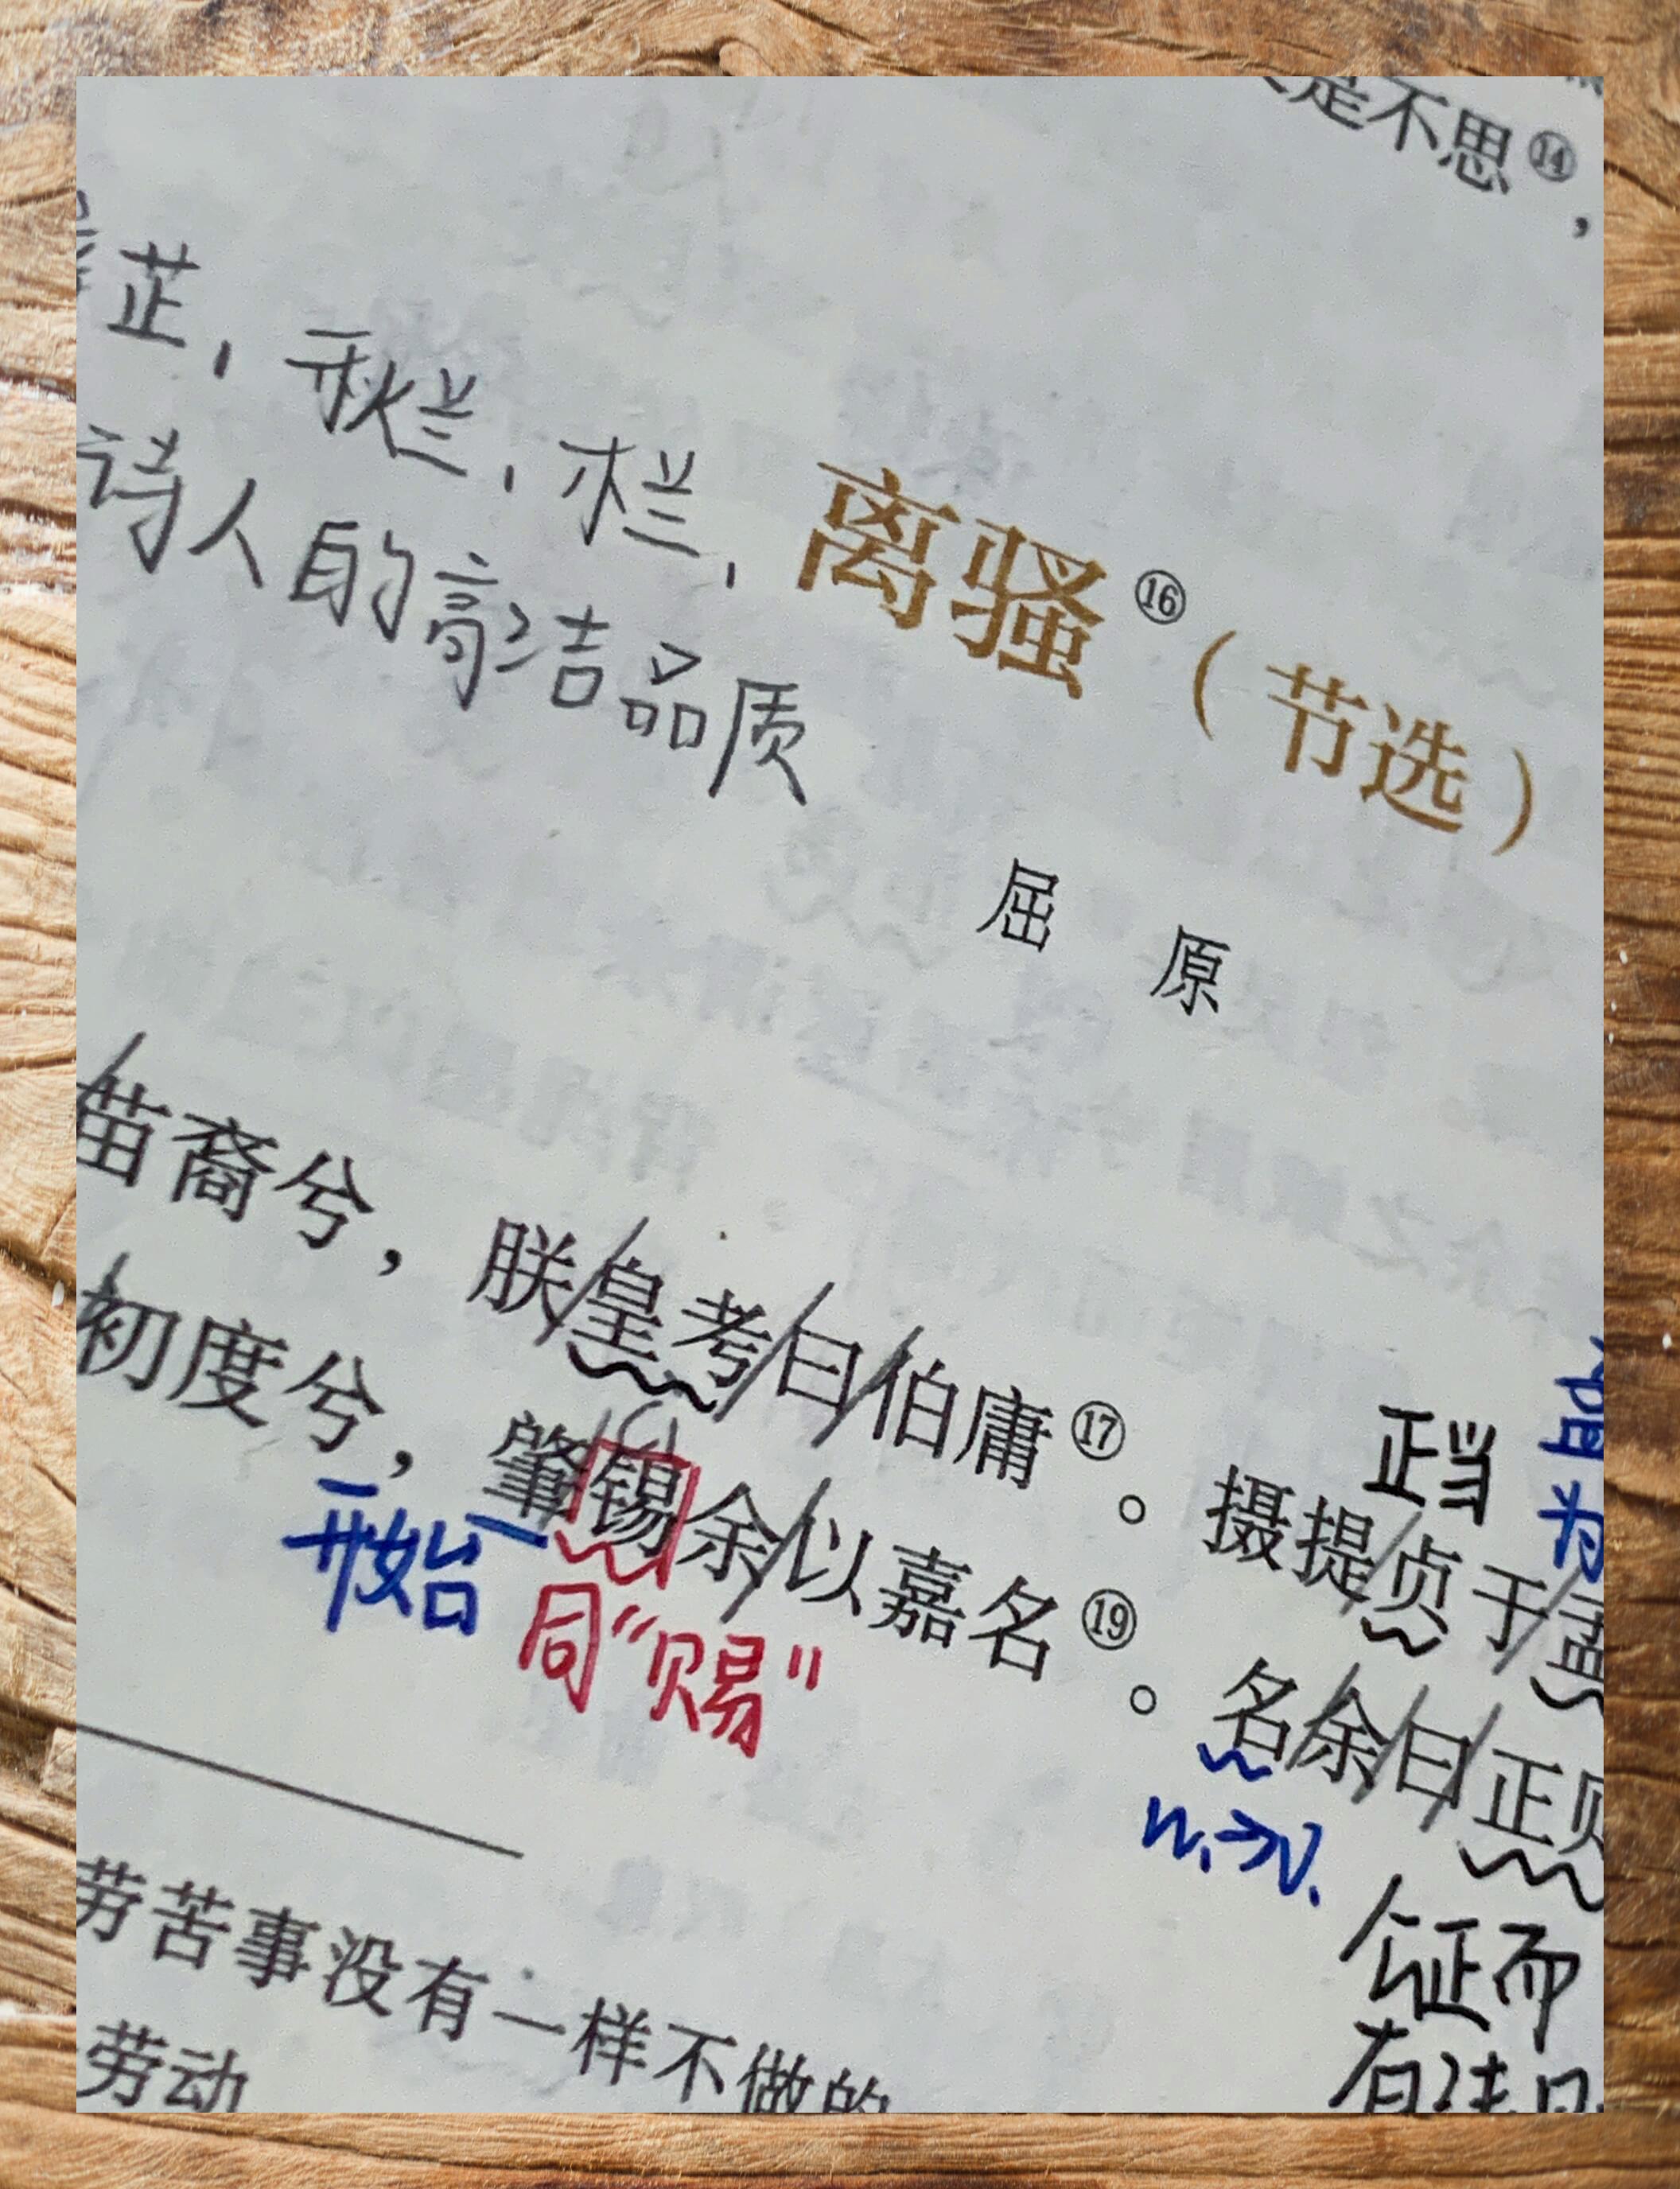 是不思⑭，
芷，秋兰，木兰，
诗人自的高洁品质
离骚⑯（节选）
屈 原
苗裔兮，朕皇考曰伯庸⑰。摄提贞于孟
正当
为
初度兮，肇锡余以嘉名⑲。名余曰正则
开始
同“赐”
n.→v.
公正而
有法
劳苦事没有一样不做的
劳动